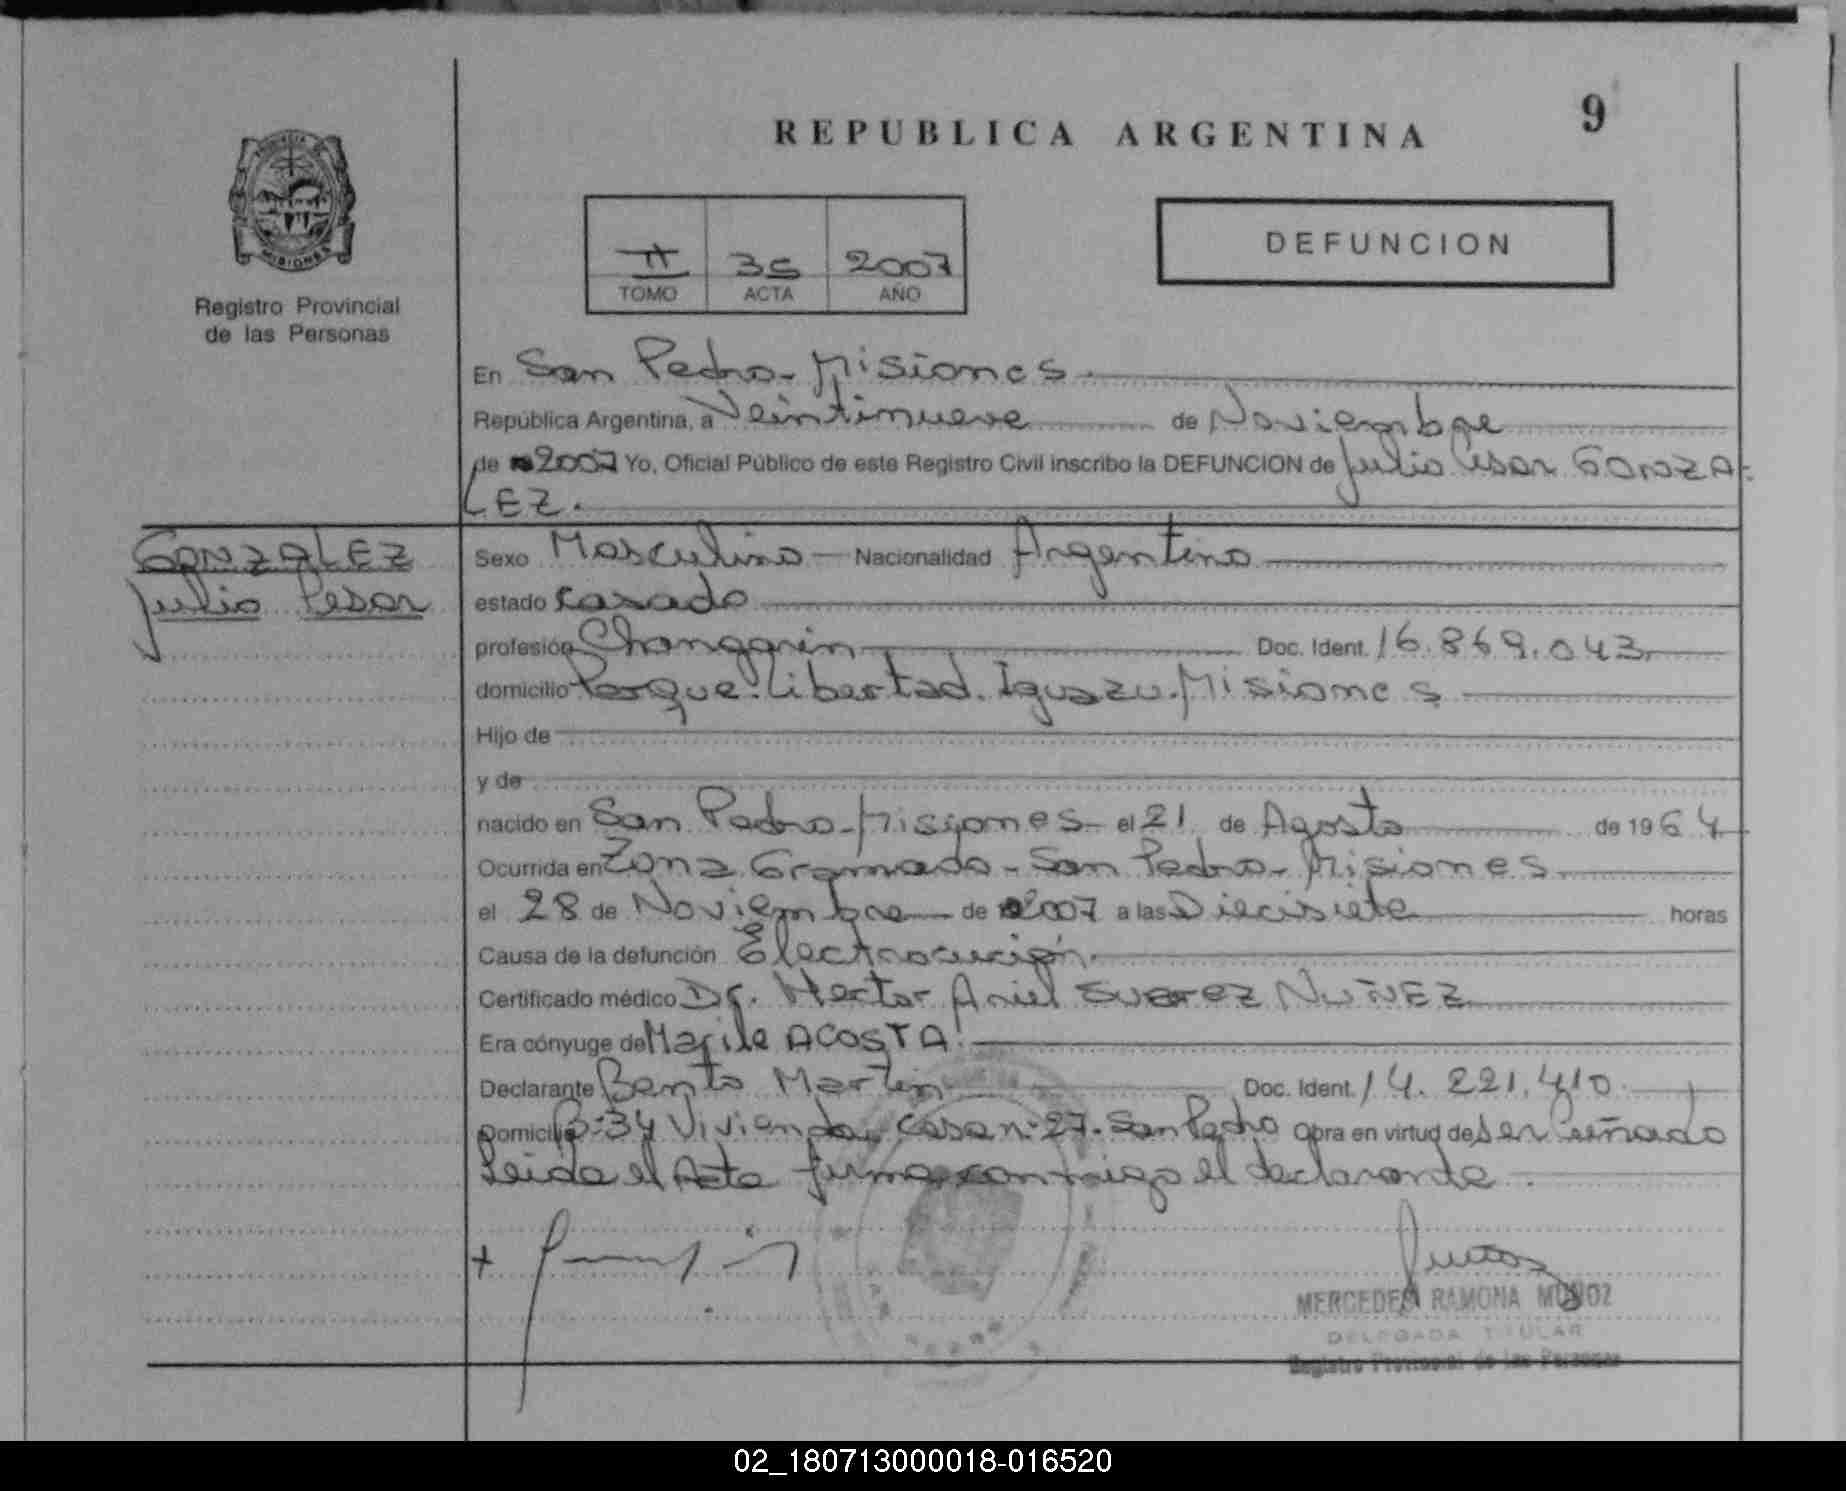 9
REPUBLICA ARGENTINA
PROVINCIA
MISIONES
Registro Provincial
de las Personas
II 35 2007
TOMO ACTA AÑO
DEFUNCION
En San Pedro - Misiones
República Argentina, a Veintinueve de Noviembre
de 2007 Yo, Oficial Público de este Registro Civil inscribo la DEFUNCION de Julio Cesar GONZA-
LEZ.
GONZALEZ
Julio Cesar
Sexo Masculino Nacionalidad Argentino
estado casado
profesión Changarin Doc. Ident. 16.869.043
domicilio Parque Libertad. Iguazu. Misiones
Hijo de
y de
nacido en San Pedro - Misiones el 21 de Agosto de 1964
Ocurrida en Zona Gramado - San Pedro - Misiones
el 28 de Noviembre de 2007 a las Diecisiete horas
Causa de la defunción Electrocución.
Certificado médico Dr. Hector Ariel SUAREZ NUÑEZ
Era cónyuge de ACOSTA
Declarante Bento Martin Doc. Ident. 14.221.410
Domicilio B: 34 Viviendas casa n: 27. San Pedro Obra en virtud de ser cuñado
Leida el Acta firma conmigo el declarante
MERCEDES RAMONA MUÑOZ
DELEGADA TITULAR
Registro Provincial de las Personas
02_180713000018-016520